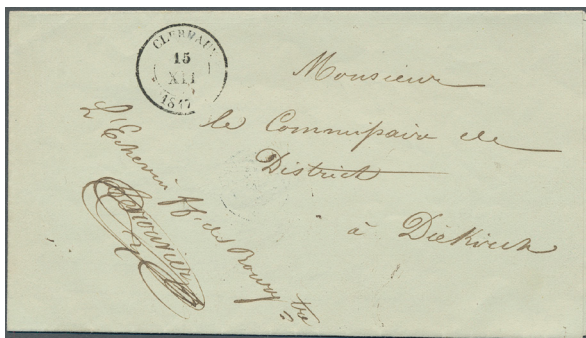 CLERVAUX
15
XII
1847
Monsieur
le Commissaire de
District
à Diekirch
L'Echevin ff. de Bourgtre